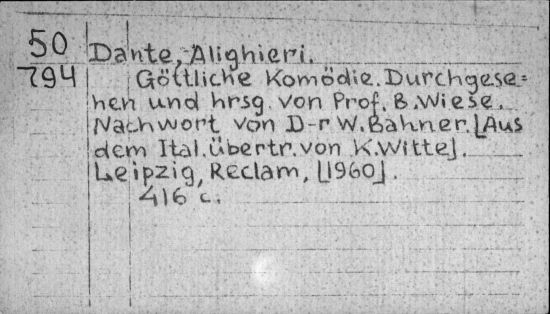 50
794
Dante, Alighieri.
Göttliche Komödie. Durchgese=
hen und hrsg. von Prof. B. Wiese.
Nachwort von D-r W. Bahner. [Aus
dem Ital. übertr. von K. Witte].
Leipzig, Reclam, [1960].
416 c.